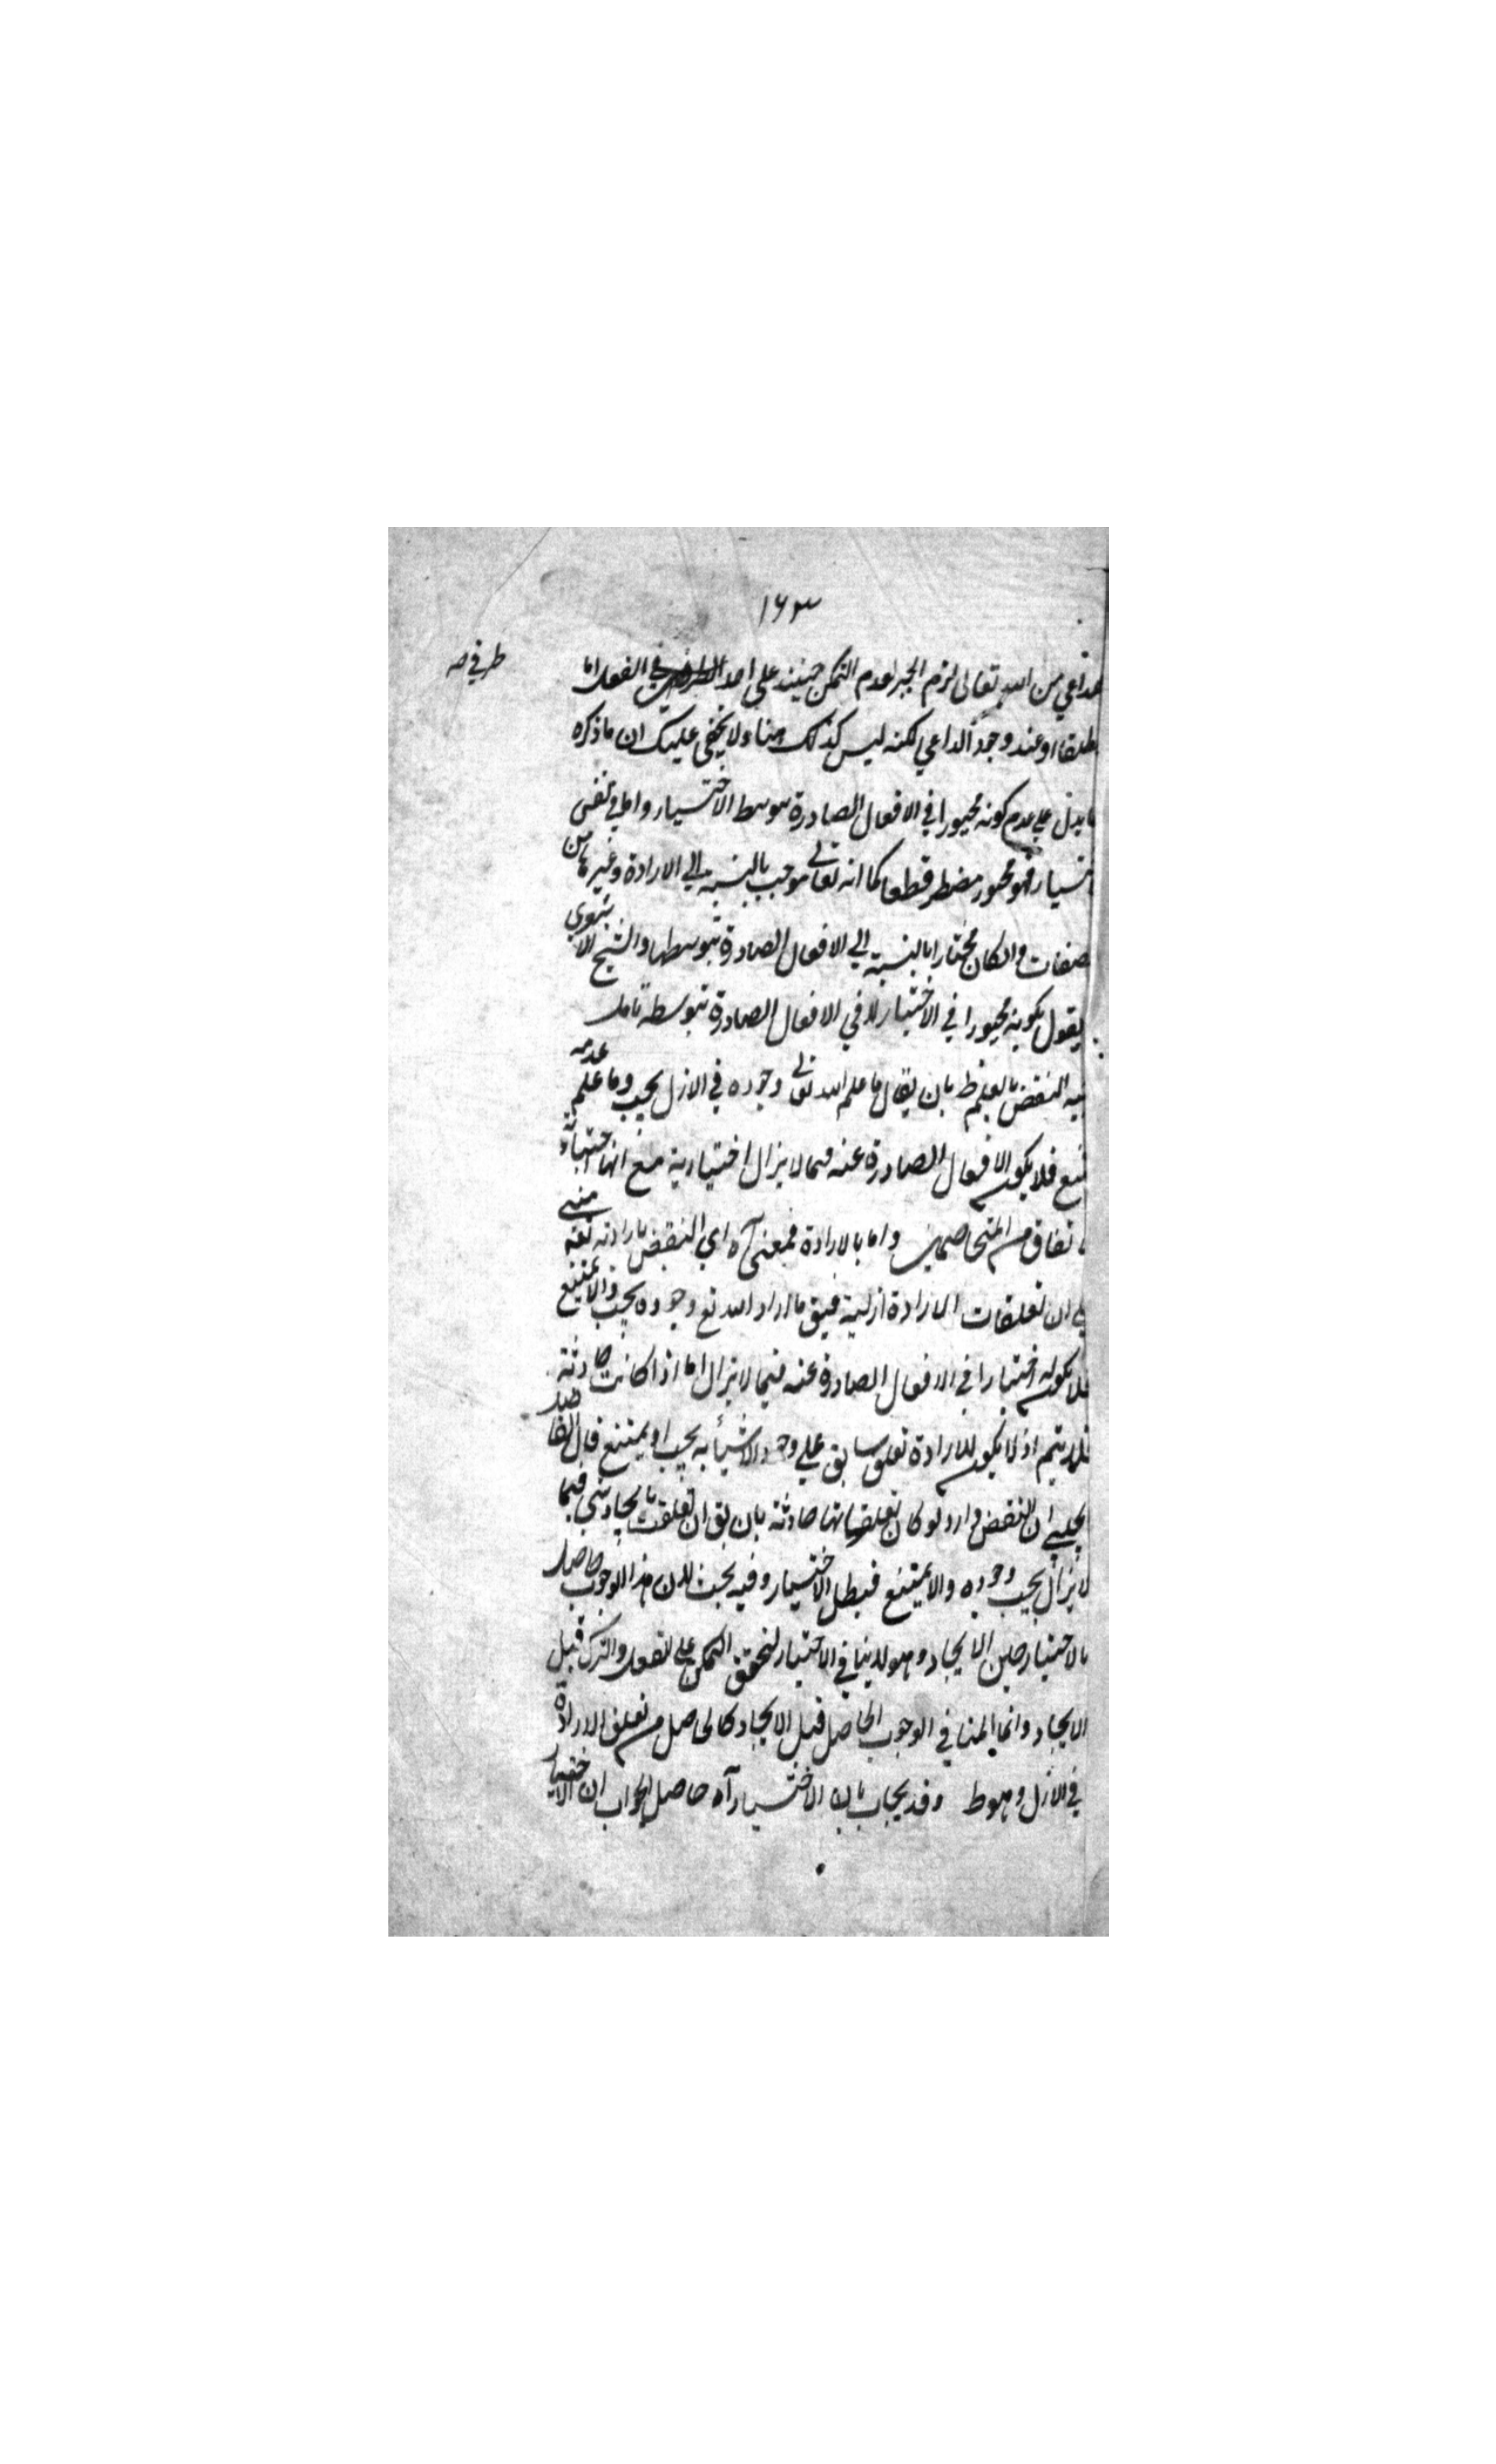 ١٦٣
طرفي صح
الداعي من الله تعالى لزم الجبر لعدم التمكن حينئذ على احد الطرفين في الفعل اما
مطلقا او عند وجود الداعي لكنه ليس كذلك هنا ولا يخفى عليك ان ما ذكره
ما يدل علي عدم كونه مجبورا في الافعال الصادرة بتوسط الاختيار واما في نفس
اختيار فهو مجبور مضطر قطعا كما انه تعالى موجب بالنسبة الي الارادة وغيرها من
الصفات وان كان مختارا بالنسبة الي الافعال الصادرة بتوسطها والشيخ الاشعري
يقول بكونه مجبورا في الاختيار لا في الافعال الصادرة بتوسطه تامل
فيه النقض بالعلم ظ بان يقال ما علم الله تعالى وجوده في الازل يجب وما علم عدمه
يمتنع فلا يكون الافعال الصادرة عنه فيما لا يزال اختيارية مع انها اختيارية
باتفاق من المتخاصمين واما بالارادة فمعنى آه اي النقض بارادته تعه مبني
علي ان تعلقات الارادة ازلية فيق ما اراد الله تع وجوده يجب والا يمتنع
فلا يكون له اختيارا في الافعال الصادرة عنه فيما لا يزال اما اذا كانت حادثة
فلا يتم اذ لا يكون للارادة تعلق سابق علي وجود الاشياء به يجب او يمتنع قال الفاضل
الچلبي ان النقض وارد لو كان تعلقاتها حادثة بان يق ان تعلقت بايجاد شي فيما
لا يزال يجب وجوده والا يمتنع فبطل الاختيار وفيه بحث لان هذا الوجوب حاصل
بالاختيار حين الايجاد وهو لا ينافي الاختيار لتحقق التمكن علي الفعل والترك قبل
الايجاد وانما المنافي الوجوب الحاصل قبل الايجاد كالحاصل من تعلق الارادة
في الازل وهو ط وقد يجاب بان الاختيار آه حاصل الجواب ان الاختيار